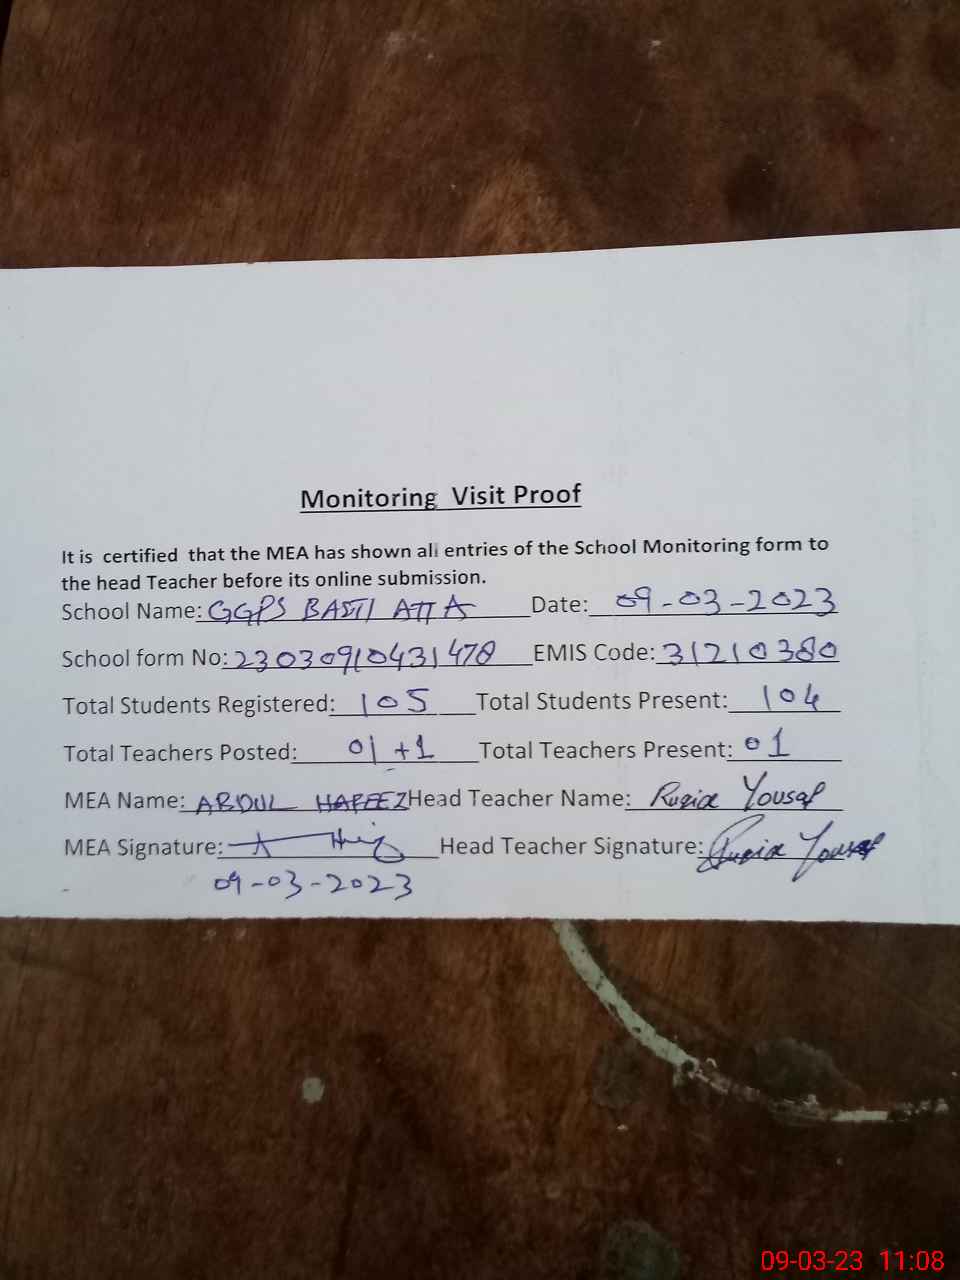 Monitoring Visit Proof
It is certified that the MEA has shown all entries of the School Monitoring form to
the head Teacher before its online submission.
School Name: GGPS BASTI ATTA Date: 09-03-2023
School form No: 23030910431478 EMIS Code: 31210380
Total Students Registered: 105 Total Students Present: 104
Total Teachers Posted: 01+1 Total Teachers Present: 01
MEA Name: ABDUL HAFEEZ Head Teacher Name: Ruqia Yousaf
MEA Signature: Head Teacher Signature: Ruqia Yousaf
09-03-2023
09-03-23 11:08